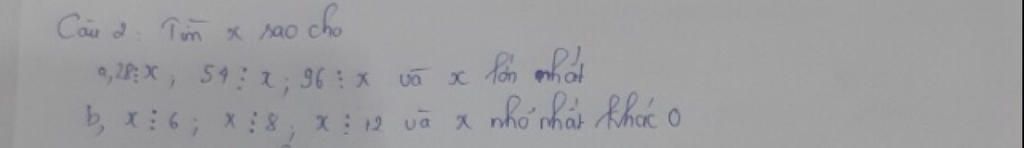 Câu 2: Tìm x sao cho
a, 28⋮x, 54⋮x; 96⋮x và x lớn nhất
b, x⋮6; x⋮8; x⋮12 và x nhỏ nhất khác 0